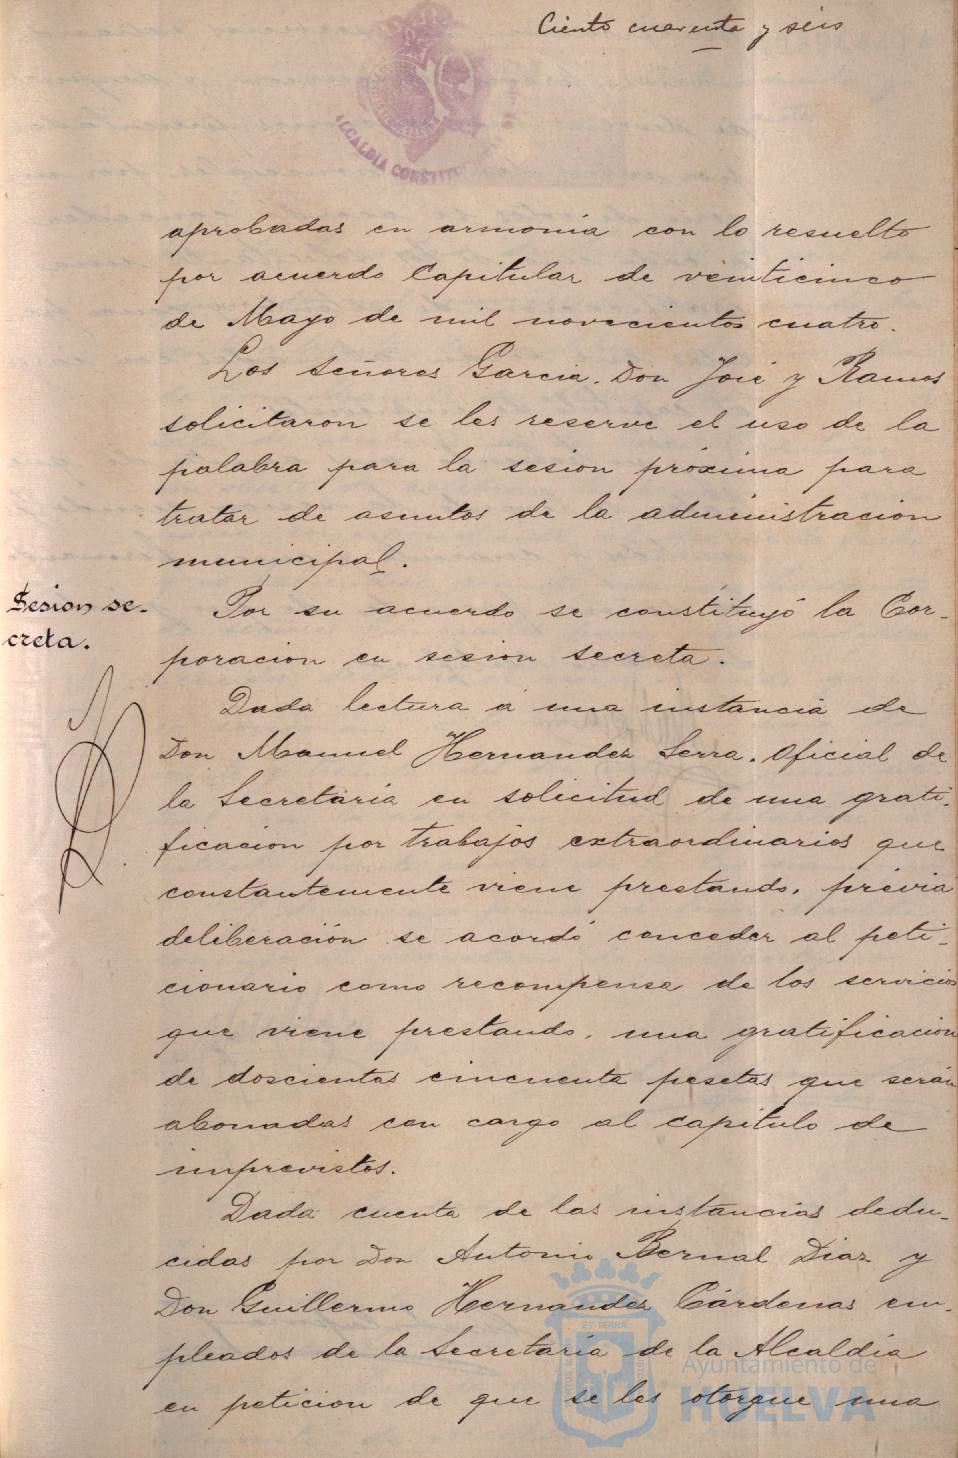 Ciento cuarenta y seis
ALCALDIA CONSTIT
aprobadas en armonia con lo resuelto
por acuerdo Capitular de veinticinco
de Mayo de mil novecientos cuatro.
Los señores Garcia. Don José y Ramos
solicitaron se les reserve el uso de la
palabra para la sesion próxima para
tratar de asuntos de la administracion
municipal.
Sesion se-
creta.
Por su acuerdo se constituyó la Cor-
poracion en sesion secreta.
Dada lectura á una instancia de
Don Manuel Hernandez Serra. Oficial de
la Secretaría en solicitud de una grati-
ficacion por trabajos extraordinarios que
constantemente viene prestando, prévia
deliberación se acordó conceder al peti-
cionario como recompensa de los servicios
que viene prestando, una gratificacion
de doscientas cincuenta pesetas que serán
abonadas con cargo al capítulo de
imprevistos.
Dada cuenta de las instancias dedu-
cidas por Don Antonio Bernal Diaz y
Don Guillermo Hernandez Cárdenas em-
pleados de la Secretaría de la Alcaldía
en peticion de que se les otorgue una
Ayuntamiento de
HUELVA